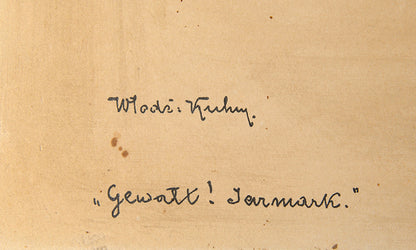 Włodz. Kuhn.
„Gewałt! Jarmark.”